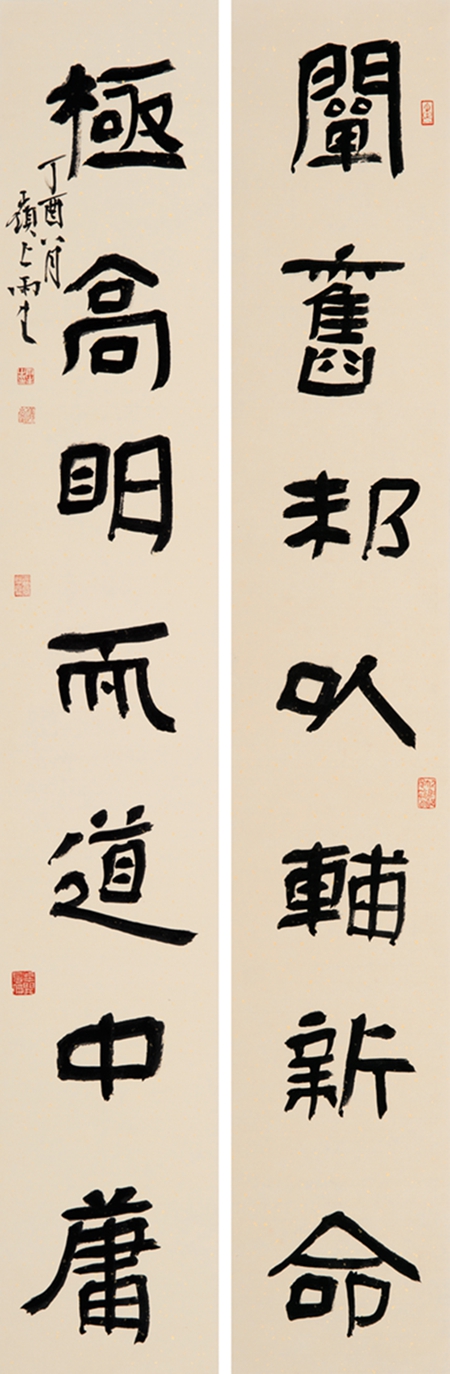 闡舊邦㕥輔新命
極高明而道中庸
丁酉八月
嶺上雨生